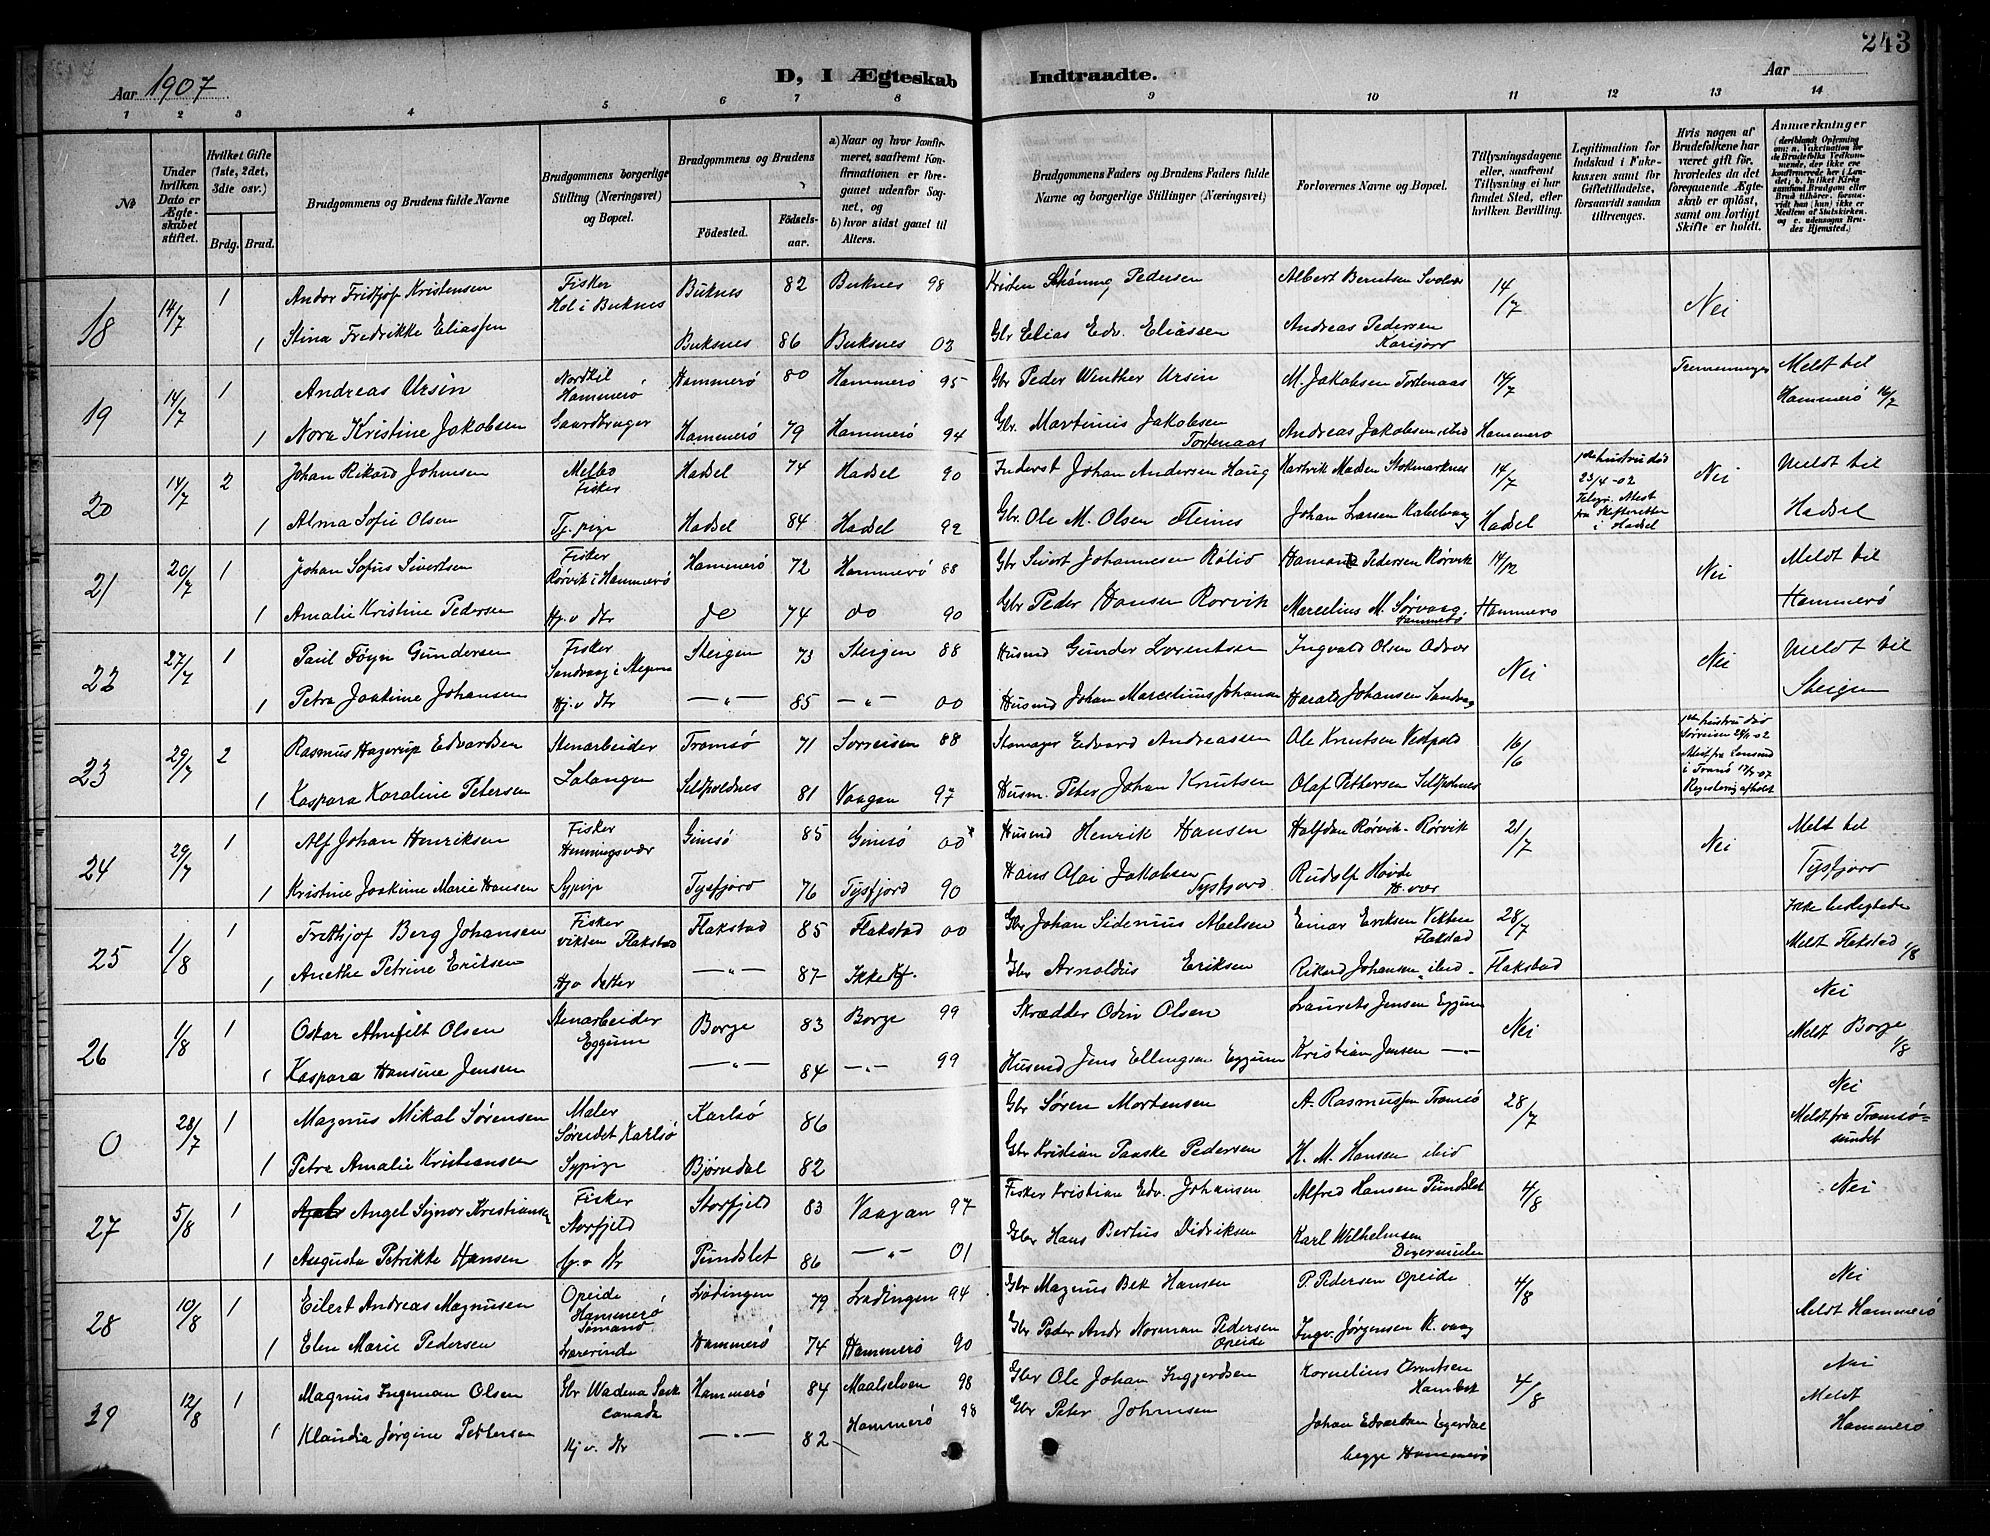 243
Aar 1907
D, I Ægteskab Indtraadte.
Aar
1 2 3 4 5 6 7 8 9 10 11 12 13 14
№
Under hvilken Dato er Ægteskabet stiftet.
Hvilket Gifte (1ste, 2det, 3die osv.)
Brdg. Brud.
Brudgommens og Brudens fulde Navne
Brudgommens borgerlige Stilling (Næringsvei) og Bopæl.
Brudgommens og Brudens
Fødested.
Fødselsaar.
a) Naar og hvor konfirmeret, saafremt Konfirmationen er foregaaet udenfor Sognet, og
b) hvor sidst gaaet til Alters.
Brudgommens Faders og Brudens Faders fulde Navne og borgerlige Stillinger (Næringsvei)
Forlovernes Navne og Bopæl.
Tillysningsdagene eller, saafremt Tillysning ei har fundet Sted, efter hvilken Bevilling.
Legitimation for Indskud i Fakrkassen samt for Giftetilladelse, forsaavidt saadan tiltrænges.
Hvis nogen af Brudefolkene har været gift før, hvorledes da det foregaaende Ægteskab er opløst, samt om lovligt Skifte er holdt.
Anmærkninger
18 14/7 1 Andor Fridtjof Kristensen Fisker Hol i Buknes Buknes 82 Buknes 98 Kristen Schøning Pedersen Albert Berntsen Svolvær 14/7 Nei
1 Stina Fredrikke Eliassen Buksnes 86 Buksnes 02 Gbr Elias Edv. Eliassen Andreas Pedersen
19 14/7 1 Andreas Ursin Nordkil Hammerø Hammerø 80 Hammerø 95 Gbr Peder Winther Ursin M. Jakobsen Tortenaas 14/7 Tremenninger Meldt til Hammerø 16/7
1 Nora Kristine Jakobsen Gaardbruger Hammerø 79 Hammerø 94 Gbr. Martinus Jakobsen Tortenaas Andreas Jakobsen, ibid Hammerø
20 14/7 2 Johan Rikard Johnsen Melbo Fisker Hadsel 74 Hadsel 90 Inderst Johan Andersen Haug Hartvik Madsen Stokmarknes 14/7 1ste hustru død 23/4-02 Telegr. Attest fra Skifteretten i Hadsel Nei Meldt til Hadsel
1 Alma Sofie Olsen Tj. pige Hadsel 84 Hadsel 92 Gbr. Ole M. Olsen Fleines Johan Larsen Kabelvaag Hadsel
21 20/7 1 Johan Sofus Sivertsen Fisker Rørvik i Hammerø Hammerø 72 Hammerø 88 Gbr Sivert Johannesen Rølid Pedersen Rørvik 14/12 Nei Meldt til Hammerø
1 Amalie Kristine Pedersen Hj. v Dtr do 74 do 90 Gbr Peder Hansen Rørvik Marcelius M. Sørvaag, Hammerø Hammerø
22 27/7 1 Paul Føyn Gundersen Fisker Sandvaag i Steigen 73 Steigen 88 Husmd Gunder Lorentsen Ingvald Olsen Odvær Nei Nei Meldt til Steigen
1 Petra Joakine Johansen Hj. v Dtr —„— 85 —„— 00 Husmd Johan Marcelius Johansen Harald Johansen Sandvaag
23 29/7 2 Rasmus Hagerup Edvardsen Stenarbeider Tromsø 71 Sørreisen 88 Skomager Edvard Andreassen Ole Knutsen Vestpold 16/6 1ste hustru død Sørreisen 02 Registering afholdt
1 Kaspara Karoline Petersen Salangen Sildpoldnes 81 Vaagan 97 Husm. Peter Johan Knutsen Olaf Pettersen Sildpoldnes
24 29/7 1 Alf Johan Henriksen Fisker Henningsvær Gimsø 85 Gimsø 00 Husmd Henrik Hansen Halfdan Rørvik - Rørvik 21/7 Nei Meldt til Tysfjord
1 Kristine Joakine Marie Hansen Sypige Tysfjord 76 Tysfjord 90 Hans Olai Jakobsen Tysfjord Rudolf Hovde H. vær
25 1/8 1 Frithjof Berg Johansen Fisker vikten Flakstad Flakstad 85 Flakstad 00 Gbr Johan Sidenius Abelsen Einar Eriksen Vikten Flakstad 28/7 Meldt Flakstad 1/8
1 Anethe Petrine Eriksen Hj. v datter —„— 87 Ikke Kf. Gbr Arnoldus Eriksen Rikard Johansen ibid - Flakstad
26 1/8 1 Oskar Ahnfelt Olsen Stenarbeider Eggum Borge 83 Borge 99 Skrædder Odin Olsen Laurits Jensen Eggum Nei Nei Meldt Borge 1/8
1 Kaspara Hansine Jensen —„— 84 —„— 99 Husmd Jens Ellingsen Eggum Kristian Jensen —„—
0 28/7 1 Magnus Mikal Sørensen Maler Søreidet Karlsø Karlsø 86 Gbr Søren Mortensen A. Rasmussen Tromsø 28/7 Nei Meldt fra Tromsøsundet
1 Petra Amalie Kristiansen Sypige Bjørndal 82 Gbr Kristian Paaske Pedersen H. M. Hansen ibid
27 5/8 1 Angel Signor Kristiansen Fisker Storfjeld Storfjeld 83 Vaagan 97 Fisker Kristian Edv. Johansen Alfred Hansen Pundslet 4/8 Nei
1 Augusta Petrikke Hansen Hj. v Dtr Pundslet 86 —„— 01 Gbr Hans Bertus Didriksen Karl Wilhelmsen Digermulen
28 10/8 1 Eilert Andreas Magnusen Opeide Hammerø Sømand Lødingen 79 Lødingen 94 Gbr Magnus Bek Hansen P. Pedersen Opeide 4/8 Nei Meldt Hammerø
1 Elen Marie Pedersen Lærerinde Hammerø 74 Hammerø 90 Gbr Peder Andr Norman Pedersen Opeide Ingv. Jørgensen K. vaag
29 12/8 1 Magnus Ingeman Olsen Gbr Wadena Sask Canada Hammerø 84 Maalselven 98 Gbr Ole Johan Inggjerdsen Kornelius Arntsen 4/8 Nei Meldt Hammerø
1 Klaudia Jørgine Pettersen Hj. v. Dtr —„— 82 Hammerø 98 Gbr Peter Johnsen Johan Edvardsen Egerdal begge Hammerø